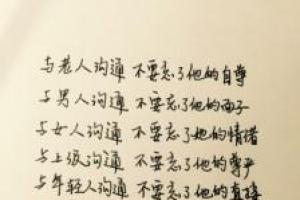 与老人沟通 不要忘了他的自尊
与男人沟通 不要忘了他的面子
与女人沟通 不要忘了她的情绪
与上级沟通 不要忘了他的尊严
与年轻人沟通 不要忘了他的直接